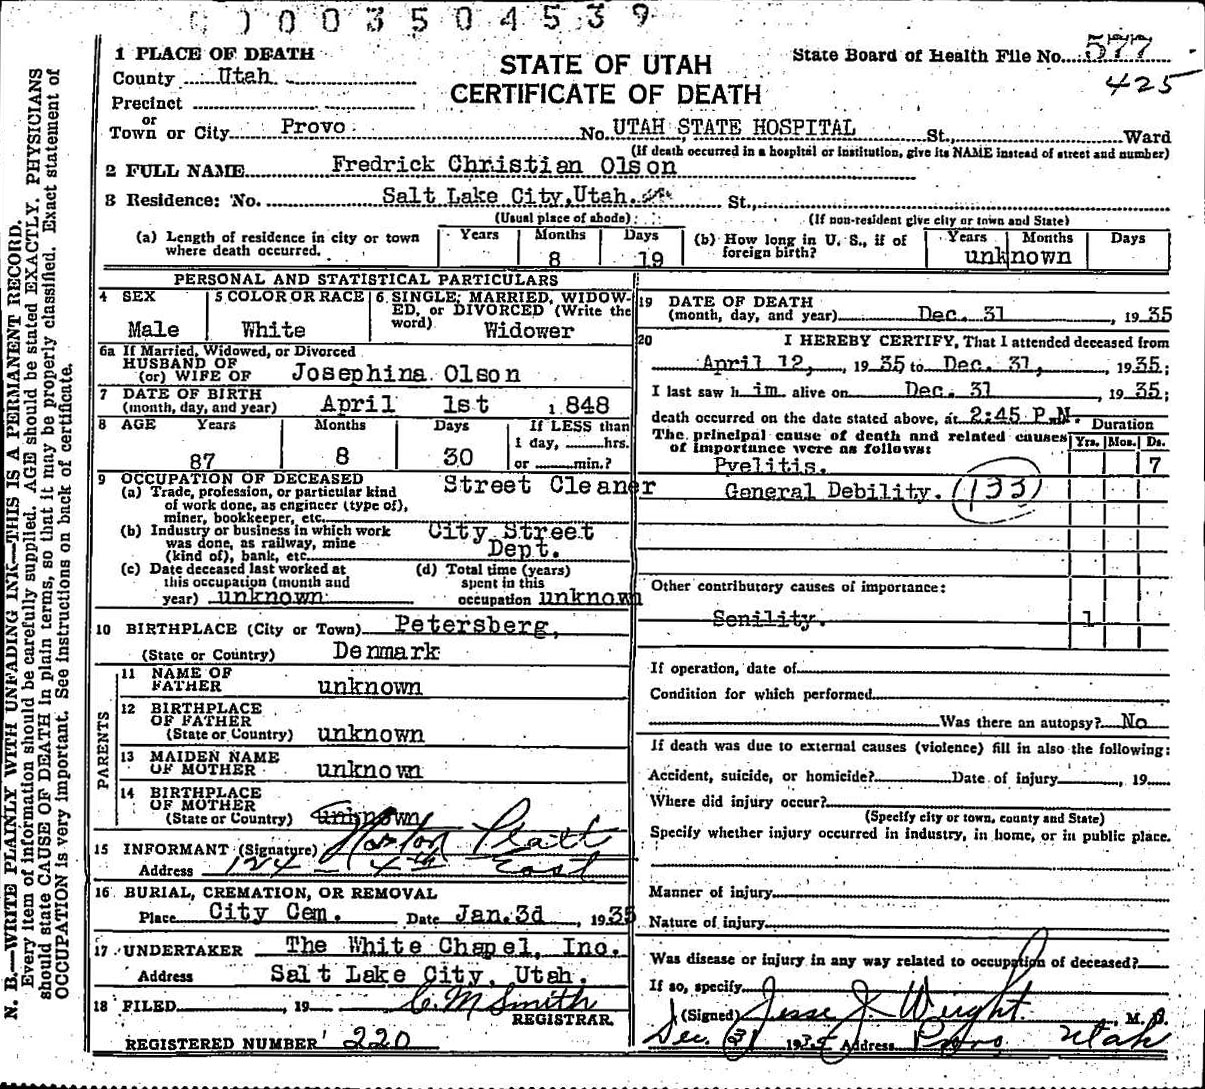 0003504539
1 PLACE OF DEATH
County Utah
Precinct
or
Town or City Provo
STATE OF UTAH
CERTIFICATE OF DEATH
State Board of Health File No. 577
425
No. UTAH STATE HOSPITAL St., Ward
(If death occurred in a hospital or institution, give its NAME instead of street and number)
2 FULL NAME Fredrick Christian Olson
3 Residence: No. Salt Lake City, Utah. St.,
(Usual place of abode)
(If non-resident give city or town and State)
(a) Length of residence in city or town where death occurred. Years Months 8 Days 19
(b) How long in U. S., if of foreign birth? Years Months Days unknown
PERSONAL AND STATISTICAL PARTICULARS
4 SEX Male
5 COLOR OR RACE White
6 SINGLE, MARRIED, WIDOWED, or DIVORCED (Write the word) Widower
6a If Married, Widowed, or Divorced
HUSBAND OF
(or) WIFE OF Josephina Olson
7 DATE OF BIRTH
(month, day, and year) April 1st 1848
8 AGE Years 87 Months 8 Days 30
If LESS than
1 day, hrs.
or min.?
9 OCCUPATION OF DECEASED
(a) Trade, profession, or particular kind of work done, as engineer (type of), miner, bookkeeper, etc. Street Cleaner
(b) Industry or business in which work was done, as railway, mine (kind of), bank, etc. City Street Dept.
(c) Date deceased last worked at this occupation (month and year) unknown
(d) Total time (years) spent in this occupation unknown
10 BIRTHPLACE (City or Town) Petersberg,
(State or Country) Denmark
PARENTS
11 NAME OF FATHER unknown
12 BIRTHPLACE OF FATHER (State or Country) unknown
13 MAIDEN NAME OF MOTHER unknown
14 BIRTHPLACE OF MOTHER (State or Country) unknown
15 INFORMANT (Signature) Norton Pratt
Address 124 - 4th East
16 BURIAL, CREMATION, OR REMOVAL
Place City Cem. Date Jan.3d, 1935
17 UNDERTAKER The White Chapel, Inc.
Address Salt Lake City, Utah.
18 FILED , 19 C. M Smith
REGISTRAR.
REGISTERED NUMBER 220
19 DATE OF DEATH
(month, day, and year) Dec. 31, 1935
20 I HEREBY CERTIFY, That I attended deceased from
April 12, 1935 to Dec. 31, 1935;
I last saw him alive on Dec. 31, 1935;
death occurred on the date stated above, at 2:45 P.M.
The principal cause of death and related causes of importance were as follows:
Duration
Yrs. Mos. Ds.
Pyelitis. 7
General Debility. (133)
Other contributory causes of importance:
Senility. 1
If operation, date of
Condition for which performed
Was there an autopsy? No
If death was due to external causes (violence) fill in also the following:
Accident, suicide, or homicide? Date of injury , 19
Where did injury occur?
(Specify city or town, county and State)
Specify whether injury occurred in industry, in home, or in public place.
Manner of injury
Nature of injury
Was disease or injury in any way related to occupation of deceased?
If so, specify
(Signed) Jesse J Weight. M. D.
Dec. 31 1935 Address Provo Utah
N. B.—WRITE PLAINLY WITH UNFADING INK—THIS IS A PERMANENT RECORD.
Every item of information should be carefully supplied. AGE should be stated EXACTLY. PHYSICIANS
should state CAUSE OF DEATH in plain terms, so that it may be properly classified. Exact statement of
OCCUPATION is very important. See instructions on back of certificate.